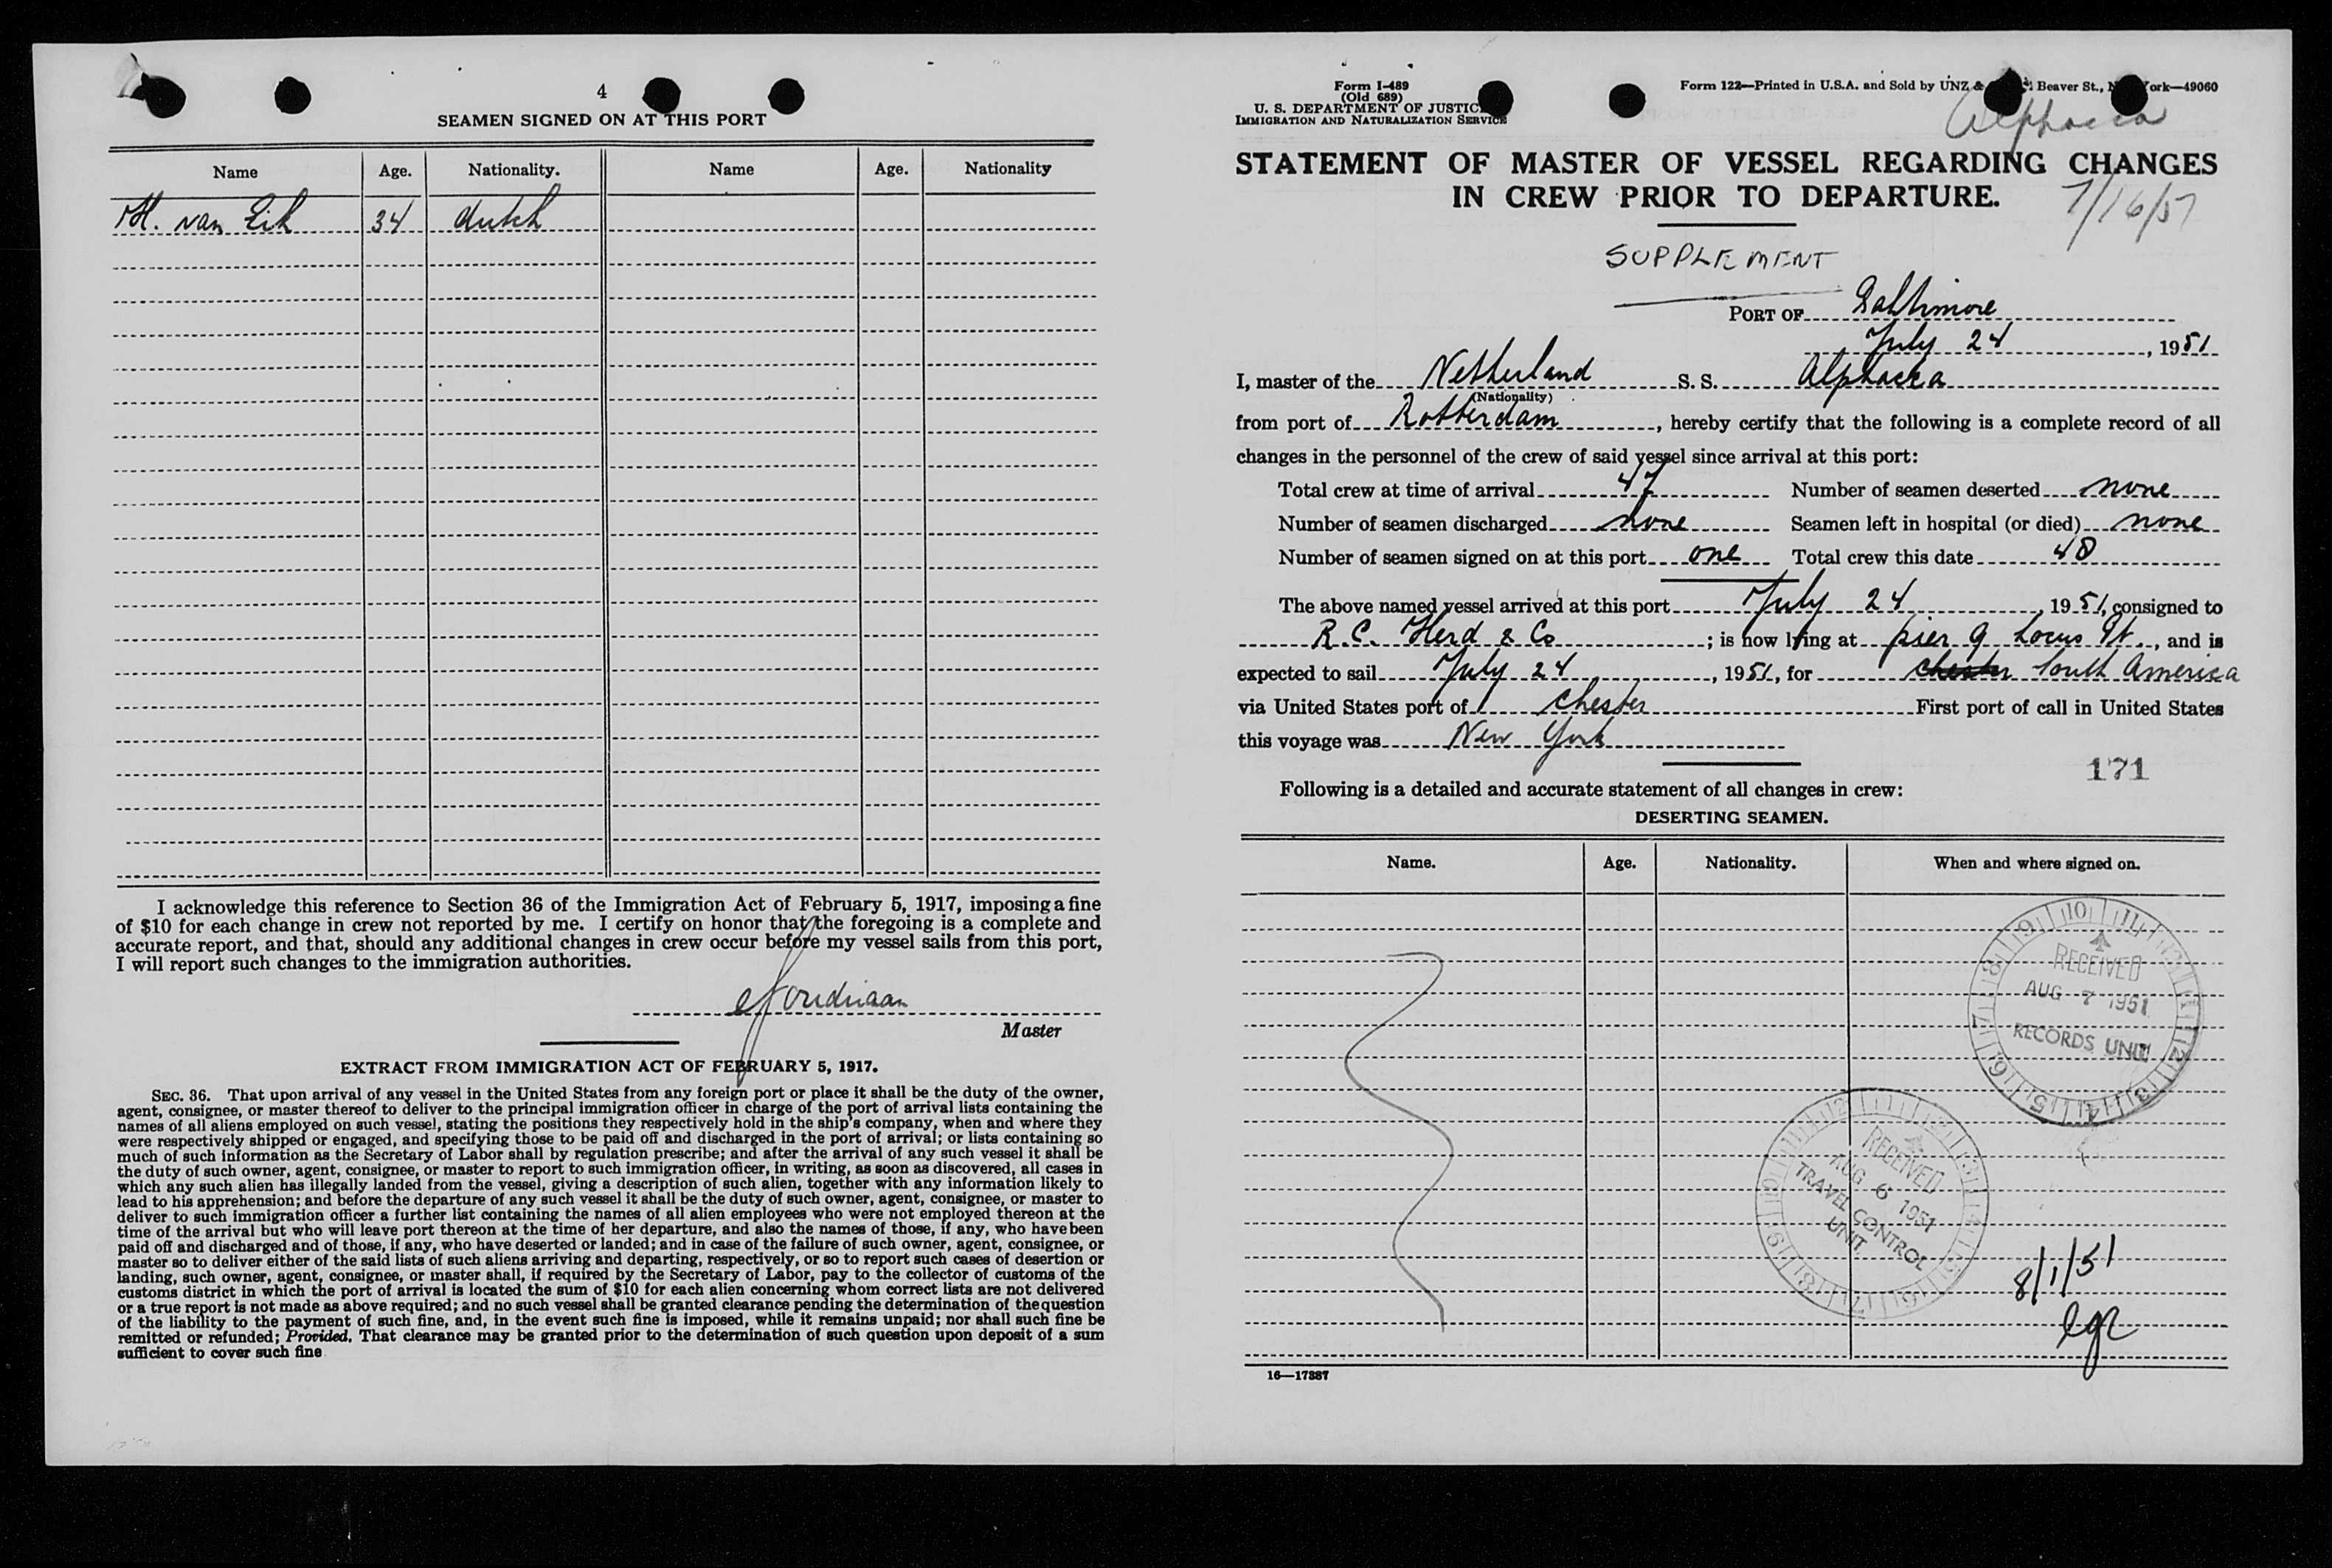 4
SEAMEN SIGNED ON AT THIS PORT
Name Age. Nationality. Name Age. Nationality
M. van Eik 34 dutch
I acknowledge this reference to Section 36 of the Immigration Act of February 5, 1917, imposing a fine
of $10 for each change in crew not reported by me. I certify on honor that the foregoing is a complete and
accurate report, and that, should any additional changes in crew occur before my vessel sails from this port,
I will report such changes to the immigration authorities.
Master
EXTRACT FROM IMMIGRATION ACT OF FEBRUARY 5, 1917.
SEC. 36. That upon arrival of any vessel in the United States from any foreign port or place it shall be the duty of the owner,
agent, consignee, or master thereof to deliver to the principal immigration officer in charge of the port of arrival lists containing the
names of all aliens employed on such vessel, stating the positions they respectively hold in the ship's company, when and where they
were respectively shipped or engaged, and specifying those to be paid off and discharged in the port of arrival; or lists containing so
much of such information as the Secretary of Labor shall by regulation prescribe; and after the arrival of any such vessel it shall be
the duty of such owner, agent, consignee, or master to report to such immigration officer, in writing, as soon as discovered, all cases in
which any such alien has illegally landed from the vessel, giving a description of such alien, together with any information likely to
lead to his apprehension; and before the departure of any such vessel it shall be the duty of such owner, agent, consignee, or master to
deliver to such immigration officer a further list containing the names of all alien employees who were not employed thereon at the
time of the arrival but who will leave port thereon at the time of her departure, and also the names of those, if any, who have been
paid off and discharged and of those, if any, who have deserted or landed; and in case of the failure of such owner, agent, consignee, or
master so to deliver either of the said lists of such aliens arriving and departing, respectively, or so to report such cases of desertion or
landing, such owner, agent, consignee, or master shall, if required by the Secretary of Labor, pay to the collector of customs of the
customs district in which the port of arrival is located the sum of $10 for each alien concerning whom correct lists are not delivered
or a true report is not made as above required; and no such vessel shall be granted clearance pending the determination of the question
of the liability to the payment of such fine, and, in the event such fine is imposed, while it remains unpaid; nor shall such fine be
remitted or refunded; Provided, That clearance may be granted prior to the determination of such question upon deposit of a sum
sufficient to cover such fine
Form I-489
(Old 689)
U. S. DEPARTMENT OF JUSTIC
IMMIGRATION AND NATURALIZATION SERVICE
Form 122—Printed in U.S.A. and Sold by UNZ & Beaver St., N ork—49060
Alphacca
STATEMENT OF MASTER OF VESSEL REGARDING CHANGES
IN CREW PRIOR TO DEPARTURE.
7/16/51
SUPPLEMENT
PORT OF Baltimore
July 24, 1951
I, master of the Netherland S. S. Alphacca
(Nationality)
from port of Rotterdam, hereby certify that the following is a complete record of all
changes in the personnel of the crew of said vessel since arrival at this port:
Total crew at time of arrival 47 Number of seamen deserted none
Number of seamen discharged none Seamen left in hospital (or died) none
Number of seamen signed on at this port one Total crew this date 48
The above named vessel arrived at this port July 24, 1951, consigned to
R.C. Herd & Co; is now lying at pier 9 Locus St., and is
expected to sail July 24, 1951, for chester South America
via United States port of Chester First port of call in United States
this voyage was New York
171
Following is a detailed and accurate statement of all changes in crew:
DESERTING SEAMEN.
Name. Age. Nationality. When and where signed on.
RECEIVED
AUG 7 1951
RECORDS UNIT
RECEIVED
AUG 6 1951
TRAVEL CONTROL
UNIT
8/1/51
16—17387